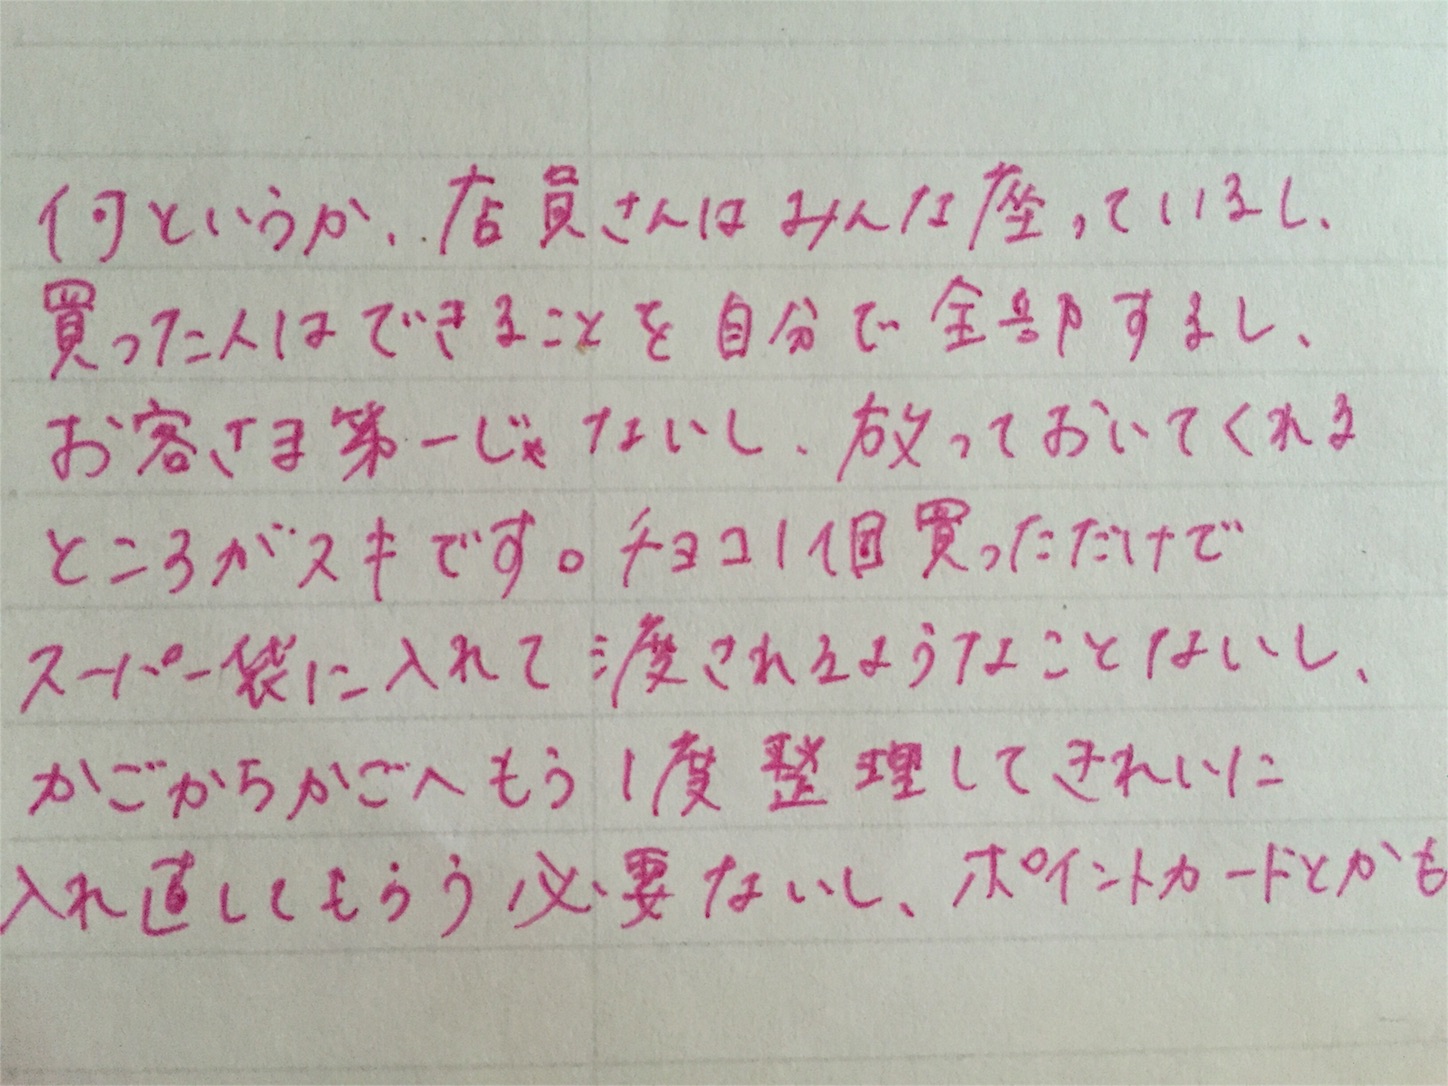 何というか、店員さんはみんな座っているし、
買った人はできることを自分で全部するし、
お客さま第一じゃないし、放っておいてくれる
ところがスキです。チョコ1個買っただけで
スーパー袋に入れて渡されるようなことないし、
かごからかごへもう1度整理してきれいに
入れ直してもらう必要ないし、ポイントカードとかも